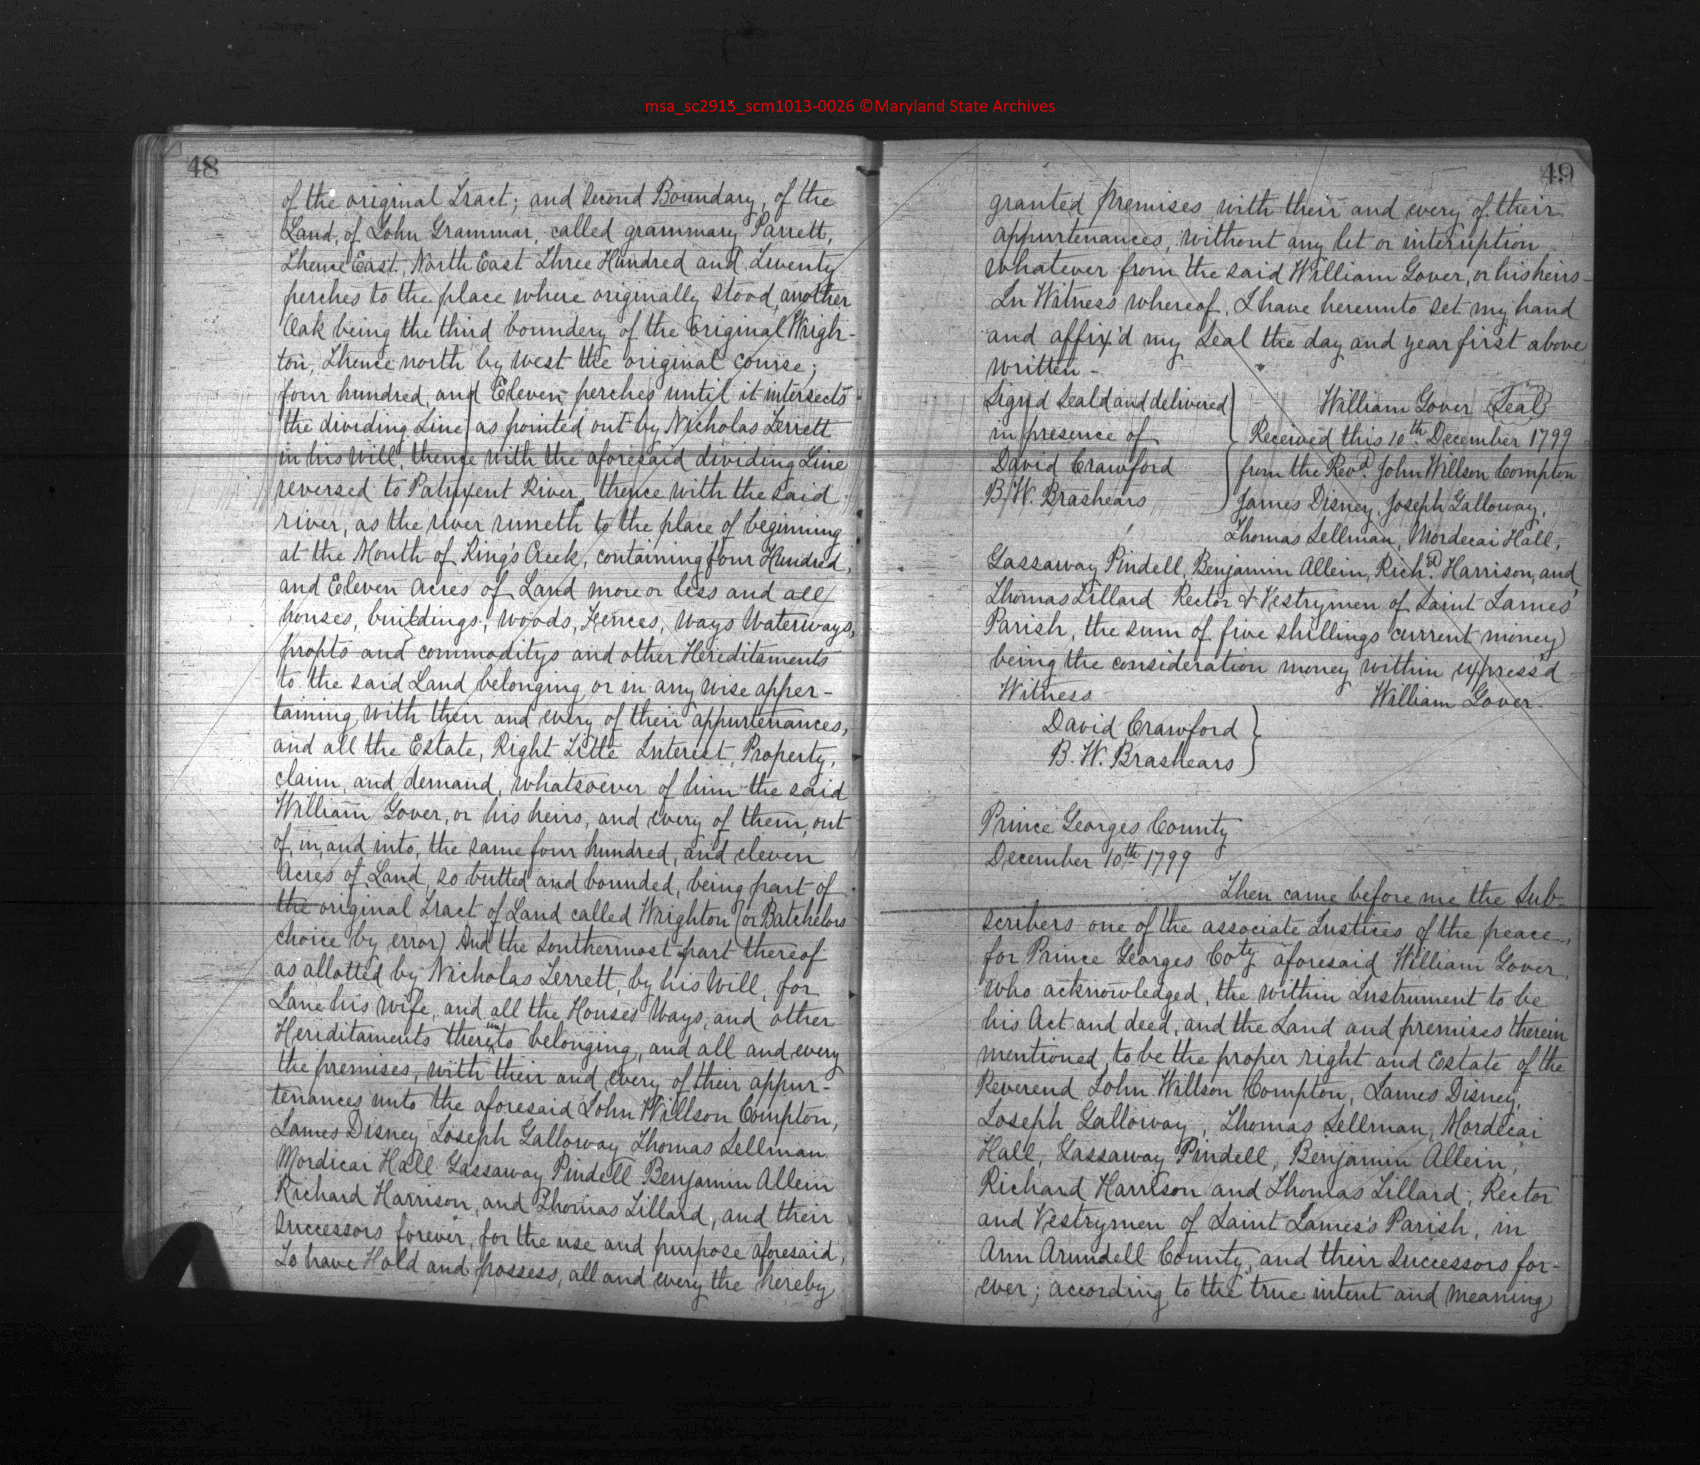 msa_sc2915_scm1013-0026 ©Maryland State Archives
48
of the original Tract; and Second Boundary, of the
Land, of John Grammar, called grammary Parrett,
Thence East, North East Three Hundred and Twenty
perches to the place where originally stood, another
Oak being the third boundery of the original Wrigh-
ton, Thence north by west the original course;
four hundred, and Eleven perches until it intersects
the dividing Line as pointed out by Nicholas Terrett
in his will, thence with the aforesaid dividing Line
reversed to Patuxent River, thence with the said
river, as the river runeth to the place of beginning
at the Mouth of King's Creek, containing four Hundred,
and Eleven acres of Land more or less and all
houses, buildings, woods, Fences, ways Waterways,
profits and commoditys and other Hereditaments
to the said Land belonging or in any wise apper-
taining with their and every of their appurtenances,
and all the Estate, Right Title Interest, Property,
claim, and demand, whatsoever of him the said
William Gover, or his heirs, and every of them, out
of, in, and into, the same four hundred, and eleven
Acres of Land, so butted and bounded, being part of
the original Tract of Land called Wrighton (or Batchelors
choice by error) And the Southermost part thereof
as allotted by Nicholas Terrett, by his Will, for
Jane his wife, and all the Houses Ways, and other
Hereditaments thereunto belonging, and all and every
the premises, with their and every of their appur-
tenances unto the aforesaid John Willson Compton,
James Disney Joseph Galloway Thomas Sellman
Mordicai Hall Gassaway Pindell Benjamin Allein
Richard Harrison, and Thomas Tillard, and their
successors forever, for the use and purpose aforesaid,
To have Hold and possess, all and every the hereby
49
granted premises with their and every of their
appurtenances, without any let or interuption
whatever from the said William Gover, or his heirs
In Witness whereof, I have hereunto set my hand
and affix'd my Seal the day and year first above
written -
Sign'd Seal'd and delivered } William Gover (Seal)
in presence of Received this 10th December 1799
David Crawford from the Revd. John Willson Compton
B. W. Brashears James Disney, Joseph Galloway,
Thomas Sellman, Mordecai Hall,
Gassaway Pindell, Benjamin Allein, Richd. Harrison, and
Thomas Tillard Rector & Vestrymen of Saint James'
Parish, the sum of five shillings current money
being the consideration money within express'd
Witness William Gover.
David Crawford }
B. W. Brashears }
Prince Georges County
December 10th 1799
Then came before me the Sub-
scribers one of the associate Justices of the peace,
for Prince Georges Coty aforesaid William Gover,
who acknowledged, the within Instrument to be
his Act and deed, and the Land and premises therein
mentioned, to be the proper right and Estate of the
Reverend John Willson Compton, James Disney,
Joseph Galloway, Thomas Sellman, Mordecai
Hall, Gassaway Pindell, Benjamin Allein,
Richard Harrison and Thomas Tillard, Rector
and Vestrymen of Saint James's Parish, in
Ann Arundell County, and their Successors for-
ever; according to the true intent and meaning